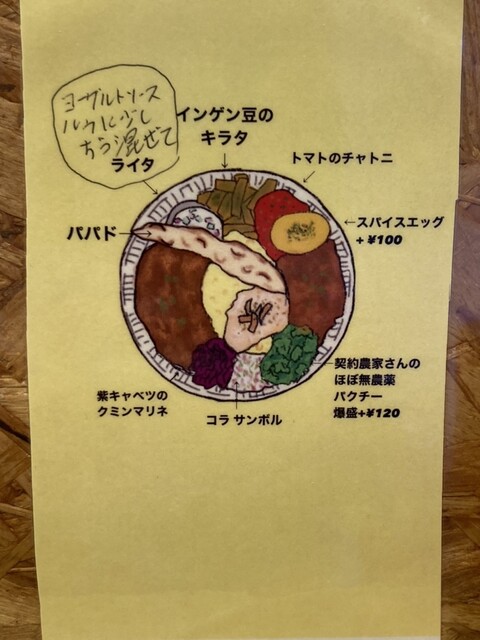 ヨーグルトソース
ルウに少し
ずつ混ぜて
ライタ
インゲン豆の
キラタ
トマトのチャトニ
パパド
←スパイスエッグ
+¥100
契約農家さんの
ほぼ無農薬
パクチー
爆盛+¥120
紫キャベツの
クミンマリネ
コラ サンボル